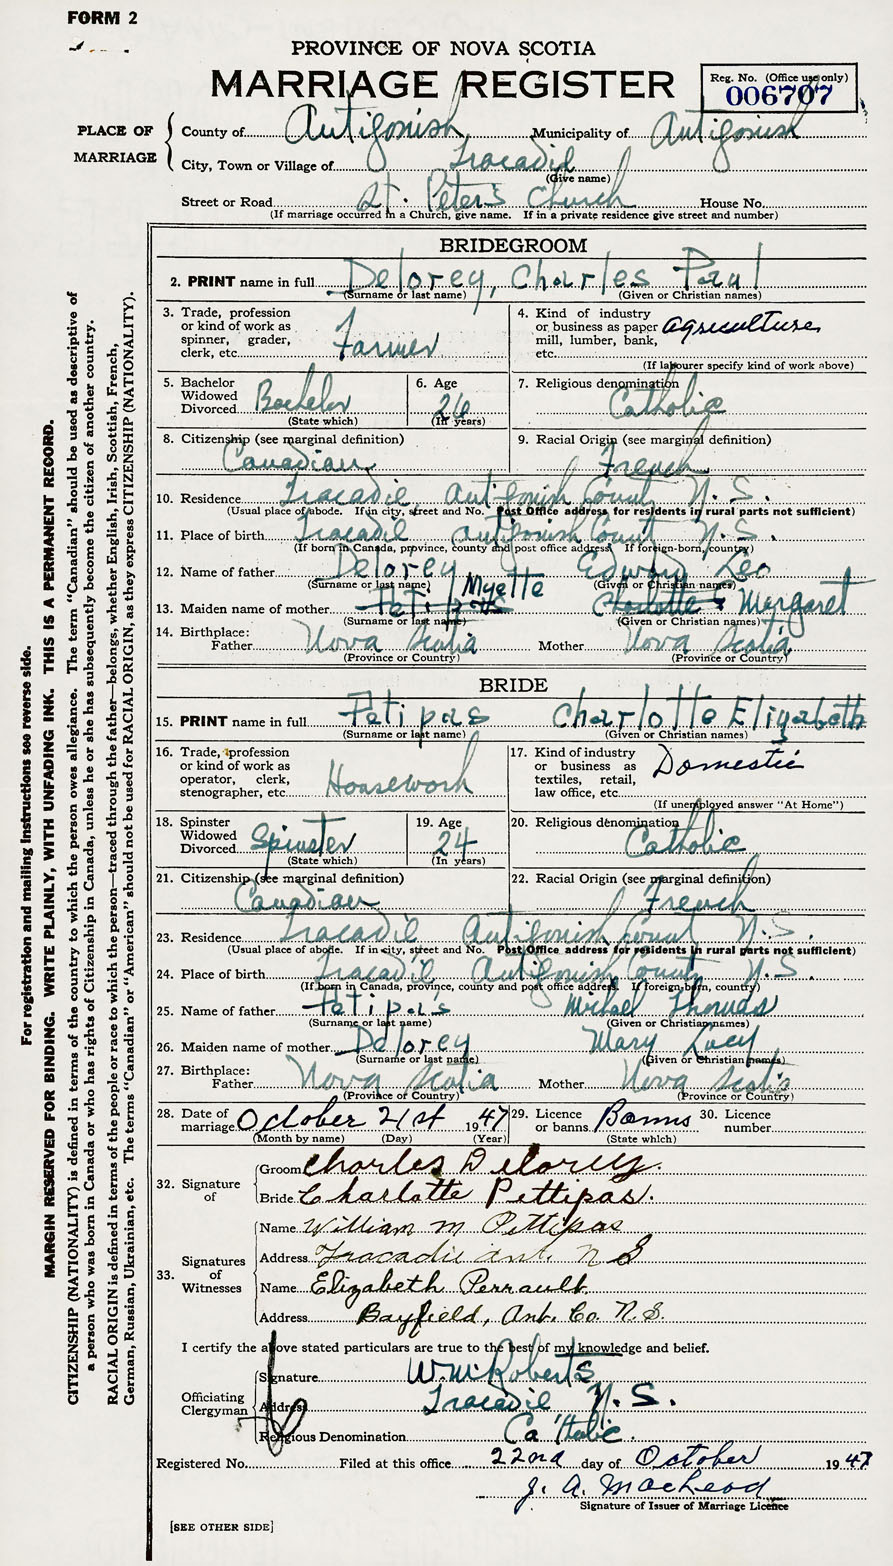 FORM 2
PROVINCE OF NOVA SCOTIA
MARRIAGE REGISTER
Reg. No. (Office use only)
006707
PLACE OF MARRIAGE
County of Antigonish Municipality of Antigonish
City, Town or Village of Tracadie
(Give name)
Street or Road St. Peter's Church House No.
(If marriage occurred in a Church, give name. If in a private residence give street and number)
BRIDEGROOM
2. PRINT name in full Delorey, Charles Paul
(Surname or last name) (Given or Christian names)
3. Trade, profession or kind of work as spinner, grader, clerk, etc. Farmer
4. Kind of industry or business as paper mill, lumber, bank, etc. agriculture
(If labourer specify kind of work above)
5. Bachelor Widowed Divorced Bachelor
(State which)
6. Age 26
(In years)
7. Religious denomination Catholic
8. Citizenship (see marginal definition) Canadian
9. Racial Origin (see marginal definition) French
10. Residence Tracadie Antigonish County N.S.
(Usual place of abode. If in city, street and No. Post Office address for residents in rural parts not sufficient)
11. Place of birth Tracadie Antigonish County N.S.
(If born in Canada, province, county and post office address. If foreign-born, country)
12. Name of father Delorey Edward Leo
(Surname or last name) (Given or Christian names)
13. Maiden name of mother Petipas Myette Charlotte E Margaret
(Surname or last name) (Given or Christian names)
14. Birthplace: Father Nova Scotia Mother Nova Scotia
(Province or Country) (Province or Country)
BRIDE
15. PRINT name in full Petipas Charlotte Elizabeth
(Surname or last name) (Given or Christian names)
16. Trade, profession or kind of work as operator, clerk, stenographer, etc. Housework
17. Kind of industry or business as textiles, retail, law office, etc. Domestic
(If unemployed answer "At Home")
18. Spinster Widowed Divorced Spinster
(State which)
19. Age 24
(In years)
20. Religious denomination Catholic
21. Citizenship (see marginal definition) Canadian
22. Racial Origin (see marginal definition) French
23. Residence Tracadie Antigonish County N.S.
(Usual place of abode. If in city, street and No. Post Office address for residents in rural parts not sufficient)
24. Place of birth Tracadie Antigonish County N.S.
(If born in Canada, province, county and post office address. If foreign-born, country)
25. Name of father Petipas Michael Thomas
(Surname or last name) (Given or Christian names)
26. Maiden name of mother Delorey Mary Lucy
(Surname or last name) (Given or Christian names)
27. Birthplace: Father Nova Scotia Mother Nova Scotia
(Province or Country) (Province or Country)
28. Date of marriage October 21st 1947
(Month by name) (Day) (Year)
29. Licence or banns Banns
(State which)
30. Licence number
32. Signature of
Groom Charles Delorey.
Bride Charlotte Pettipas.
33. Signatures of Witnesses
Name William M Pettipas
Address Tracadie ant. N S
Name Elizabeth Perrault
Address Bayfield, Ant. Co. N.S.
I certify the above stated particulars are true to the best of my knowledge and belief.
Officiating Clergyman
Signature Wm. Roberts
Address Tracadie N.S.
Religious Denomination Catholic.
Registered No. Filed at this office 22nd day of October 1947
J. A. MacLeod
Signature of Issuer of Marriage Licence
[SEE OTHER SIDE]
For registration and mailing instructions see reverse side.
MARGIN RESERVED FOR BINDING. WRITE PLAINLY, WITH UNFADING INK. THIS IS A PERMANENT RECORD.
CITIZENSHIP (NATIONALITY) is defined in terms of the country to which the person owes allegiance. The term "Canadian" should be used as descriptive of
a person who was born in Canada or who has rights of Citizenship in Canada, unless he or she has subsequently become the citizen of another country.
RACIAL ORIGIN is defined in terms of the people or race to which the person—traced through the father—belongs, whether English, Irish, Scottish, French,
German, Russian, Ukrainian, etc. The terms "Canadian" or "American" should not be used for RACIAL ORIGIN, as they express CITIZENSHIP (NATIONALITY).